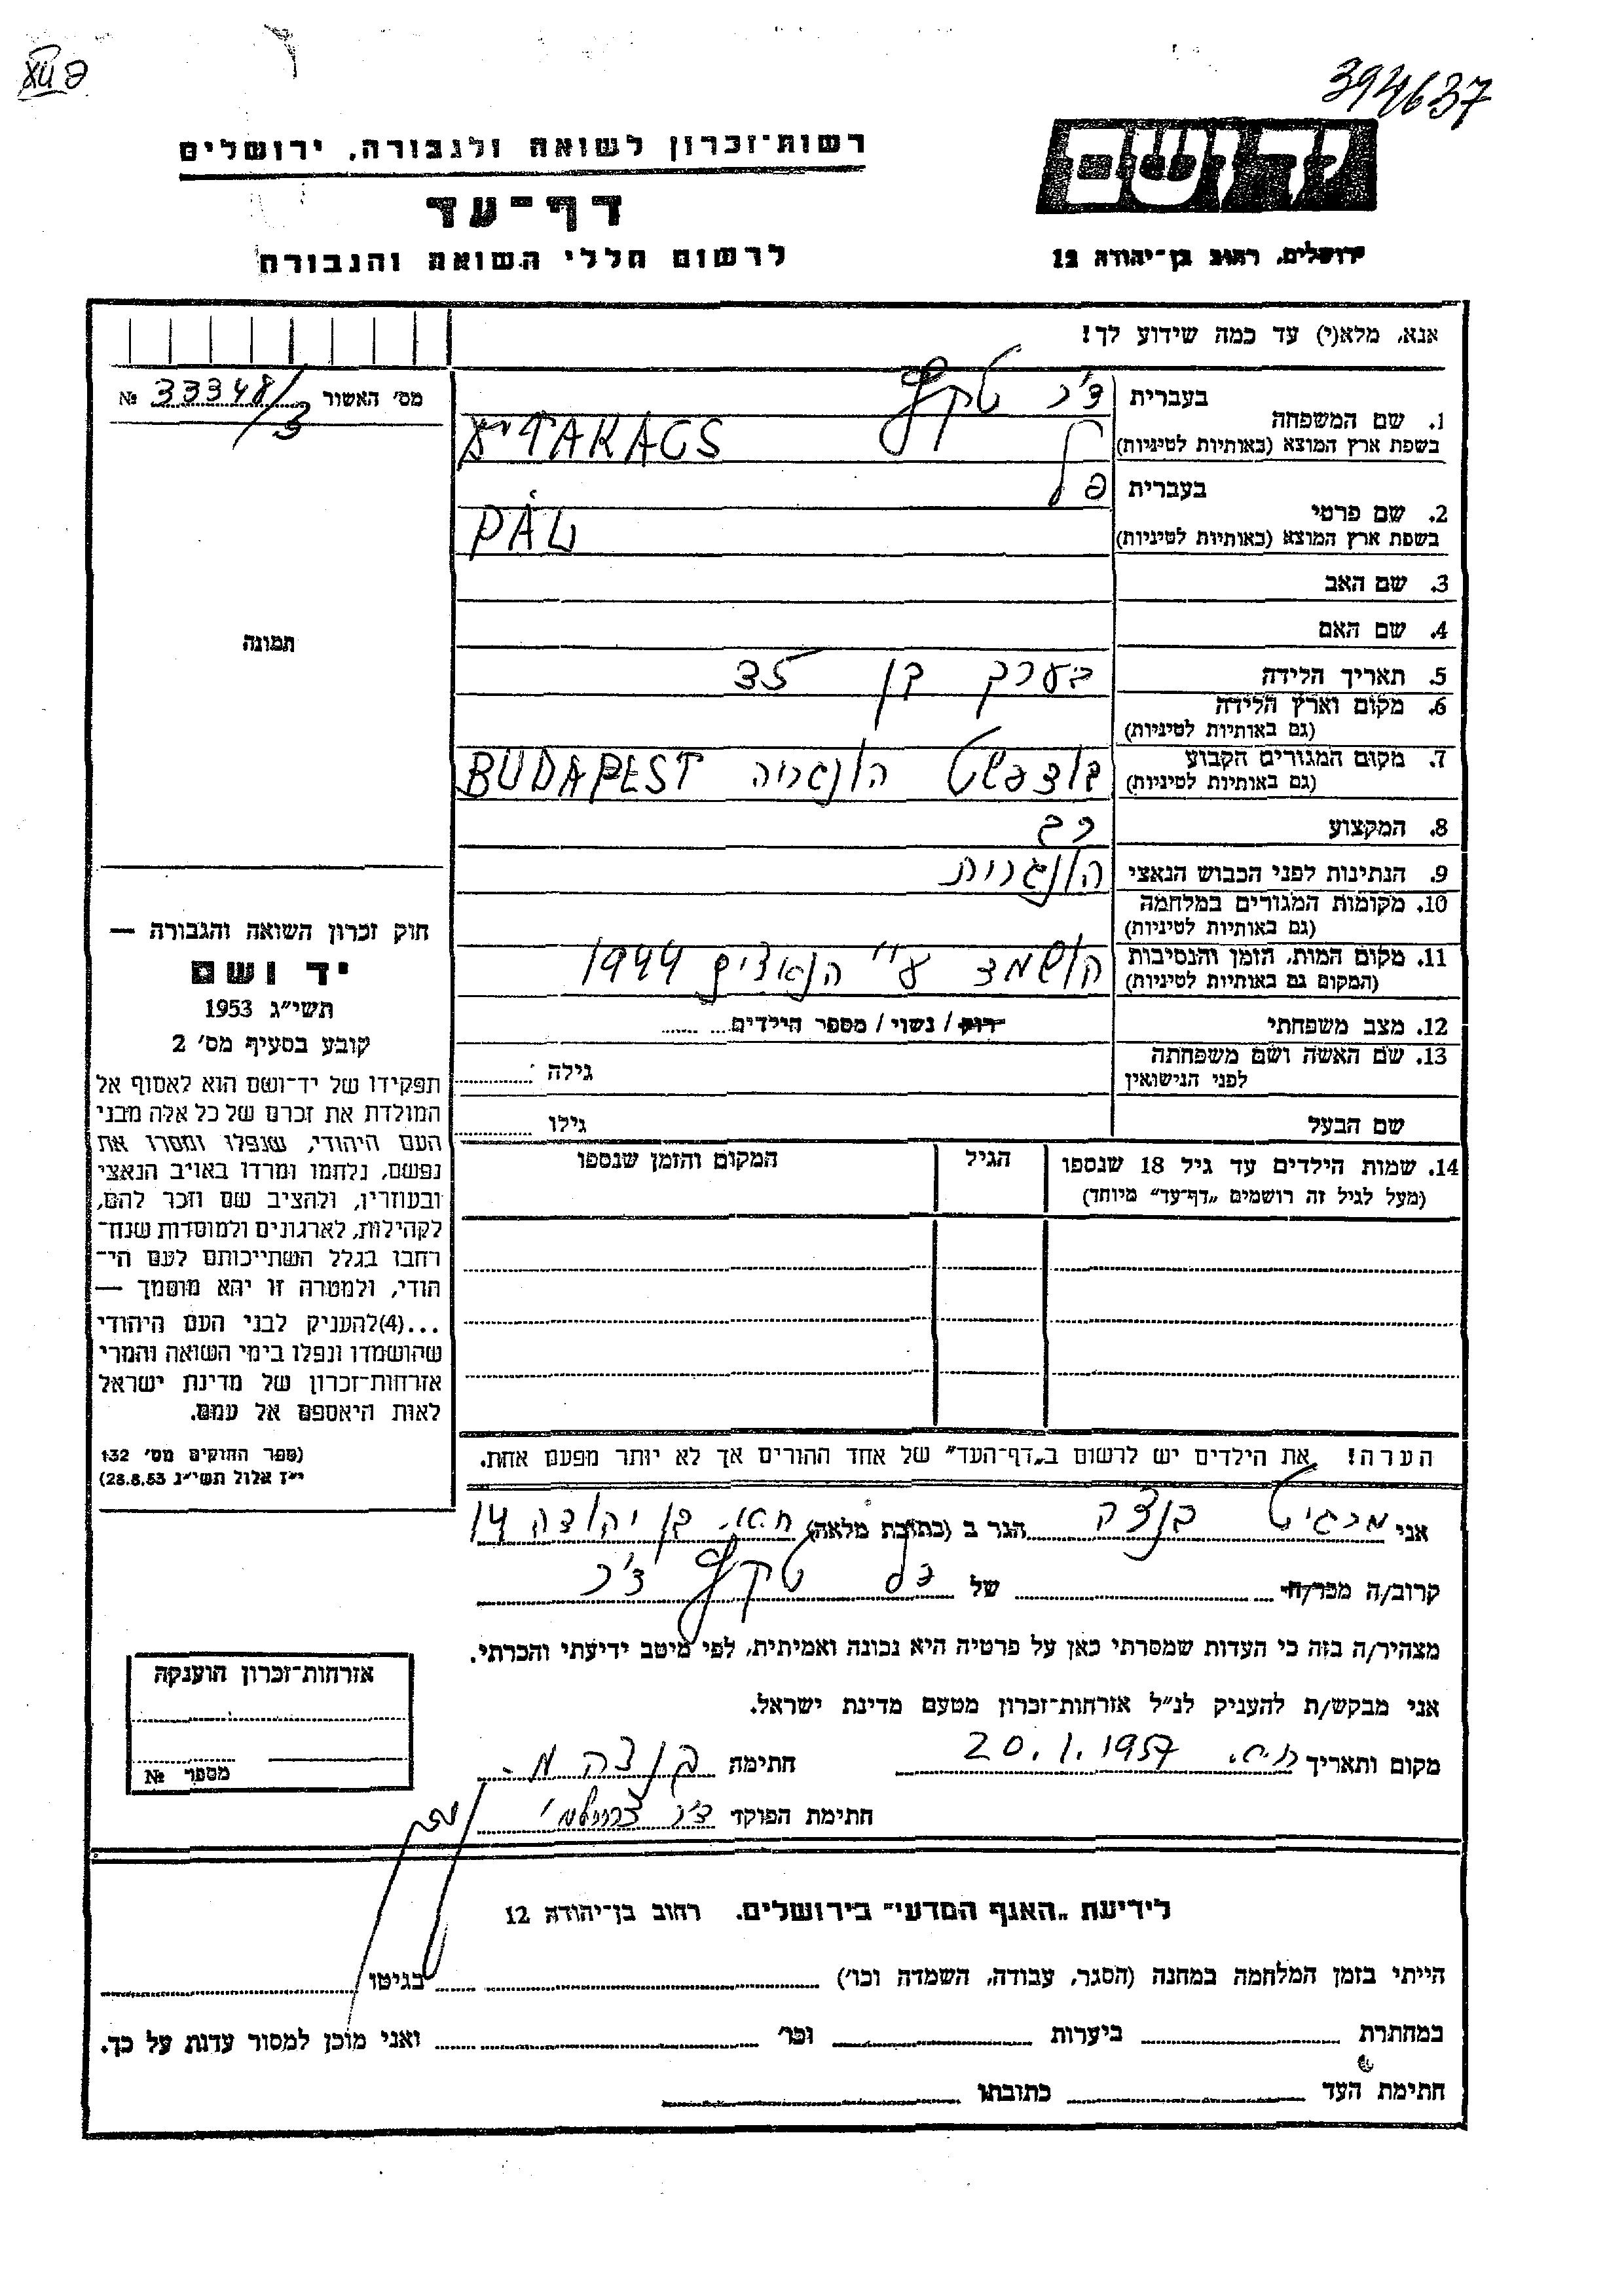 394637
רשות־זכרון לשואה ולגבורה, ירושלים
דף־עד
לרשום חללי השואה והגבורה
ידושם
ירושלים, רחוב בן־יהודה 12
אנא, מלא(י) עד כמה שידוע לך!
מס׳ האשור № 33348/3
תמונה
1. שם המשפחה בעברית
בשפת ארץ המוצא (באותיות לטיניות) TAKACS
2. שם פרטי בעברית פל
בשפת ארץ המוצא (באותיות לטיניות) PÁL
3. שם האב
4. שם האם
5. תאריך הלידה בערך בן 35
6. מקום וארץ הלידה
(גם באותיות לטיניות)
7. מקום המגורים הקבוע בודפשט הונגריה BUDAPEST
(גם באותיות לטיניות)
8. המקצוע רב
9. הנתינות לפני הכבוש הנאצי הונגרית
10. מקומות המגורים במלחמה
(גם באותיות לטיניות)
11. מקום המות, הזמן והנסיבות הושמד ע״י הנאצים 1944
(המקום גם באותיות לטיניות)
12. מצב משפחתי רווק / נשוי / מספר הילדים
13. שם האשה ושם משפחתה
לפני הנישואין גילה
שם הבעל גילו
14. שמות הילדים עד גיל 18 שנספו הגיל המקום והזמן שנספו
(מעל לגיל זה רושמים „דף־עד״ מיוחד)
הערה! את הילדים יש לרשום ב„דף־העד״ של אחד ההורים אך לא יותר מפעם אחת.
חוק זכרון השואה והגבורה —
יד ושם
תשי״ג 1953
קובע בסעיף מס׳ 2
תפקידו של יד־ושם הוא לאסוף אל
המולדת את זכרם של כל אלה מבני
העם היהודי, שנפלו ומסרו את
נפשם, נלחמו ומרדו באויב הנאצי
ובעוזריו, ולהציב שם וזכר להם,
לקהילות, לארגונים ולמוסדות שנח־
רבו בגלל השתייכותם לעם הי־
הודי, ולמטרה זו יהא מוסמך —
...(4) להעניק לבני העם היהודי
שהושמדו ונפלו בימי השואה והמרי
אזרחות־זכרון של מדינת ישראל
לאות היאספם אל עמם.
(ספר החוקים מס׳ 132
י״ז אלול תשי״ג 28.8.53)
אני מרגיט הגר ב (כתובת מלאה) בן יהודה 14
קרוב/ה מכר/ה של
מצהיר/ה בזה כי העדות שמסרתי כאן על פרטיה היא נכונה ואמיתית, לפי מיטב ידיעתי והכרתי.
אני מבקש/ת להעניק לנ״ל אזרחות־זכרון מטעם מדינת ישראל.
מקום ותאריך 20.1.1957 חתימה
חתימת הפוקד
אזרחות־זכרון הוענקה
מספר №
לידיעת „האגף המדעי״ בירושלים. רחוב בן־יהודה 12
הייתי בזמן המלחמה במחנה (הסגר, עבודה, השמדה וכו׳) בגיטו
במחתרת ביערות וכו׳ ואני מוכן למסור עדות על כך.
חתימת העד כתובתו